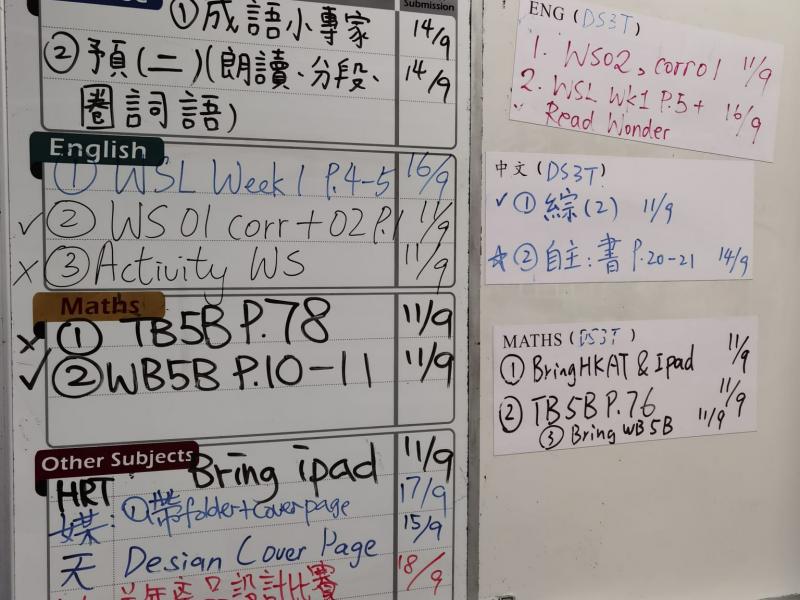 Submission
① 成語小專家 14/9
② 預(二)(朗讀、分段、 14/9
圈詞語)
English
① WSL Week 1 P.4-5 16/9
✓ ② WS 01 corr + 02 P.1 11/9
× ③ Activity WS 11/9
Maths
× ① TB5B P.78 11/9
✓ ② WB5B P.10-11 11/9
Other Subjects
HRT Bring ipad 11/9
媒: ① 帶folder+coverpage 17/9
天 Design Cover Page 15/9
設計比賽 18/9
ENG (DS3T)
1. WS02, corr01 11/9
2. WSL Wk1 P.5 + 16/9
Read Wonder
中文 (DS3T)
✓ ① 綜(2) 11/9
☆ ② 自主:書 P.20-21 14/9
MATHS (DS3T)
① Bring HKAT & Ipad 11/9
② TB5B P.76 11/9
③ Bring WB5B 11/9